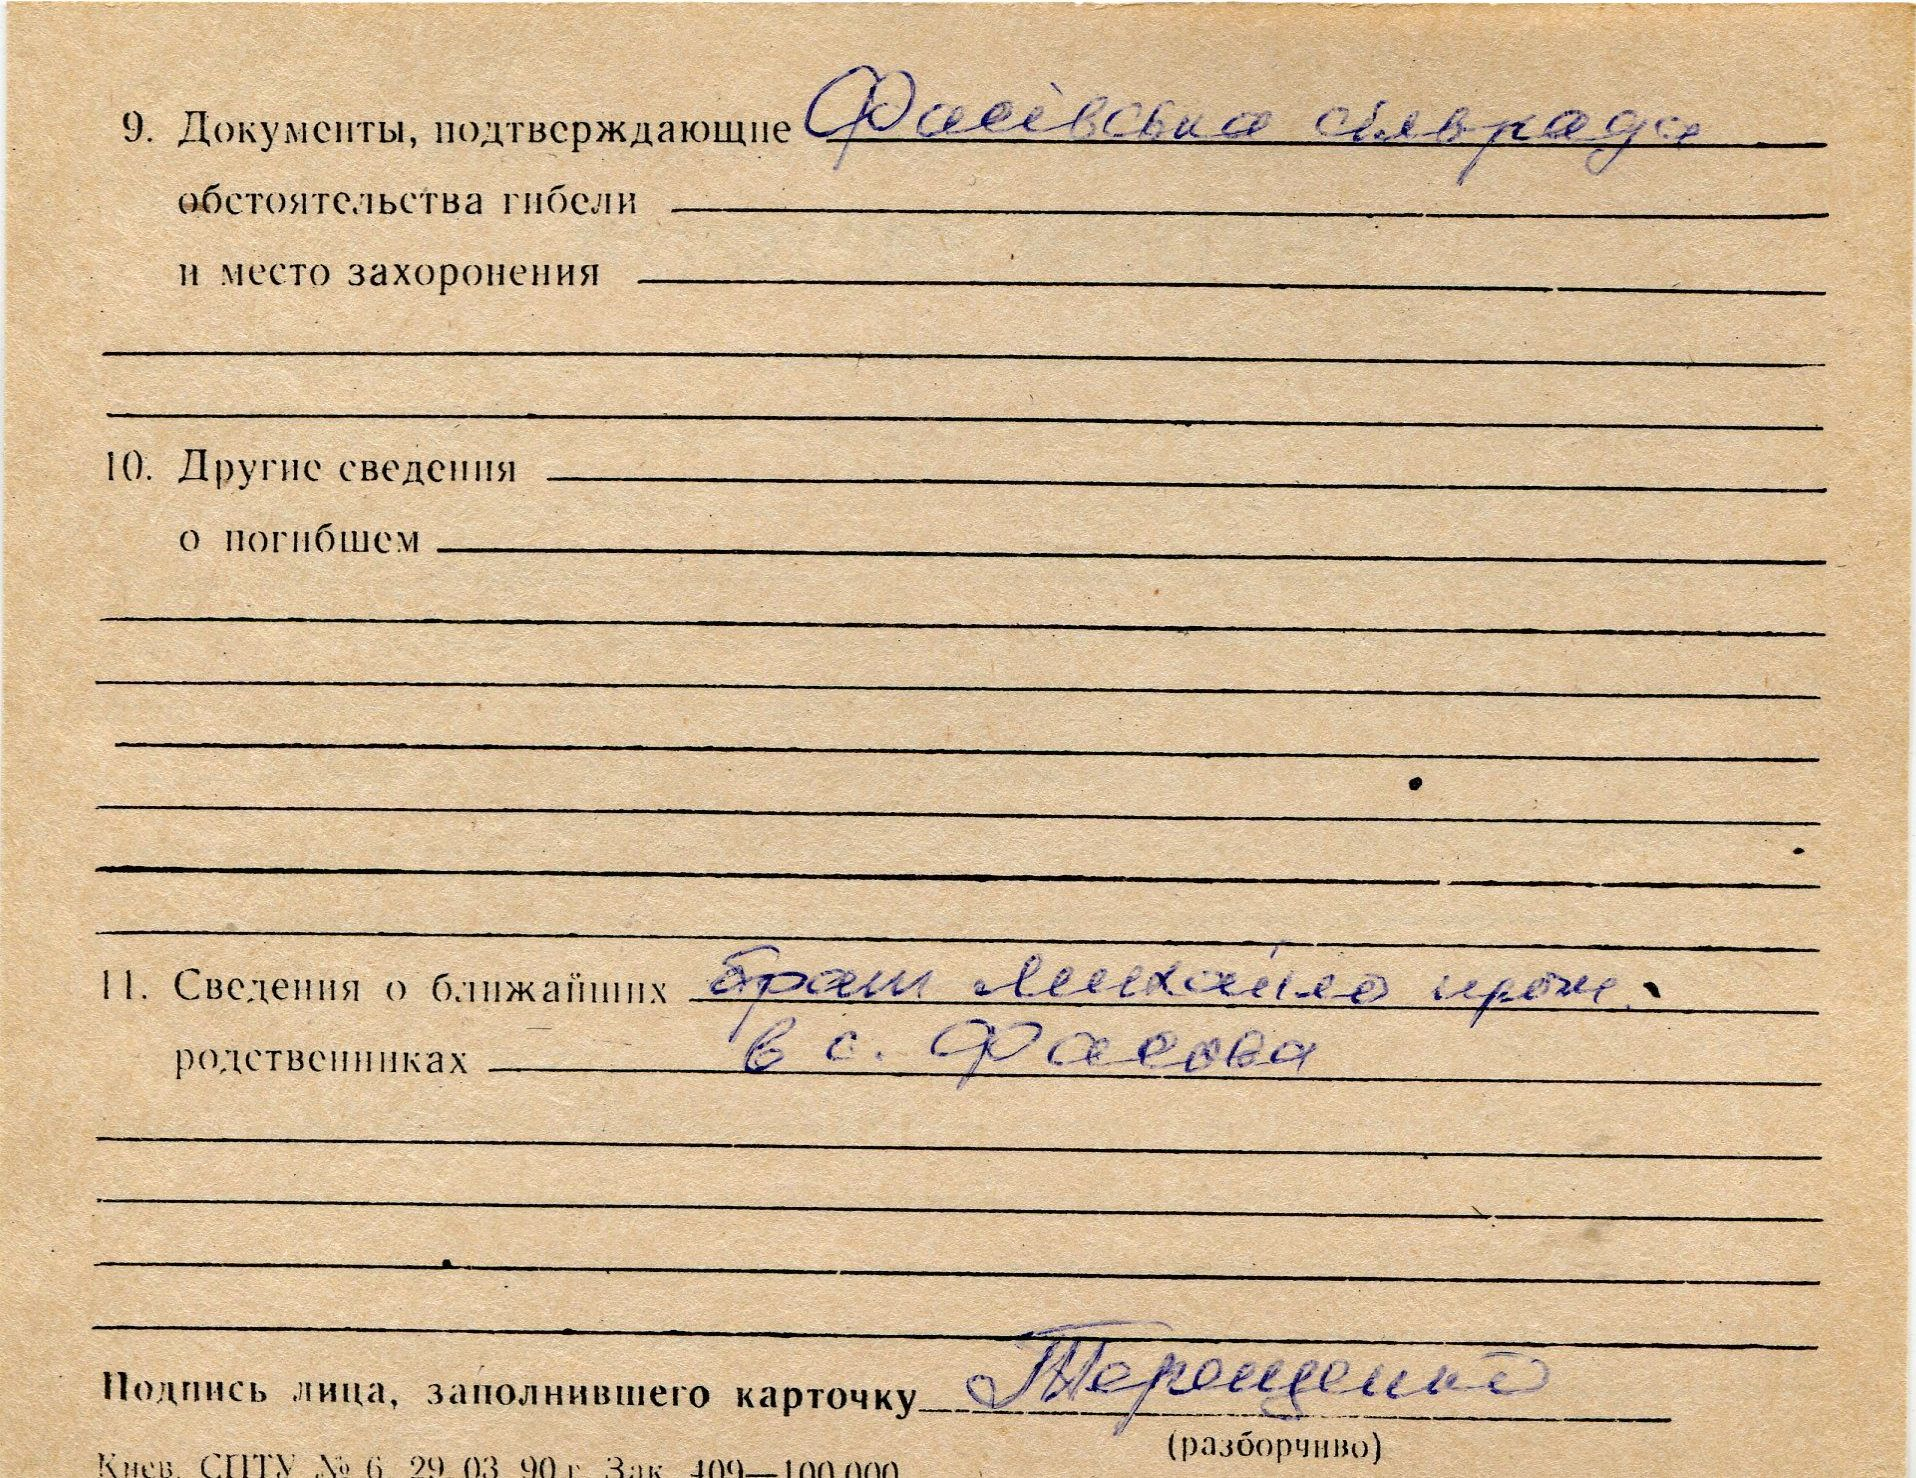 9. Документы, подтверждающие Фасівська сільрада
обстоятельства гибели
и место захоронения
10. Другие сведения
о погибшем
11. Сведения о ближайших брат Михайло прож.
родственниках в с. Фасова
Подпись лица, заполнившего карточку Терещенко
(разборчиво)
Киев. СПТУ № 6 29.03.90 г. Зак. 409—100.000